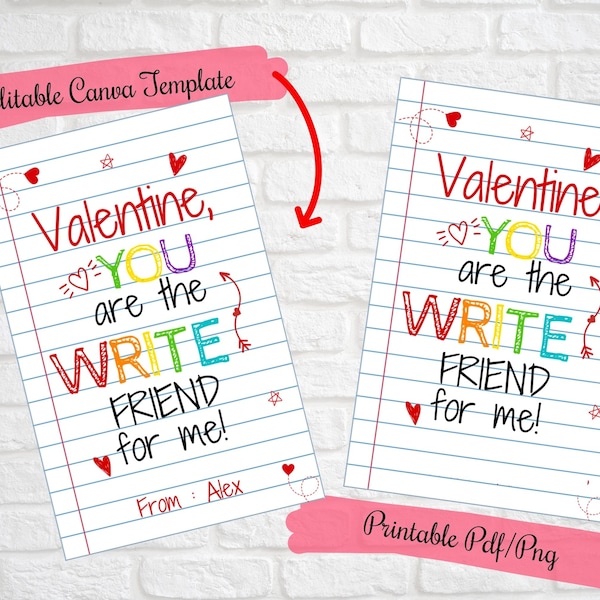 ditable Canva Template
Valentine,
YOU
are the
WRITE
FRIEND
for me!
From : Alex
Valentine
YOU
are the
WRITE
FRIEND
for me!
Printable Pdf/Png